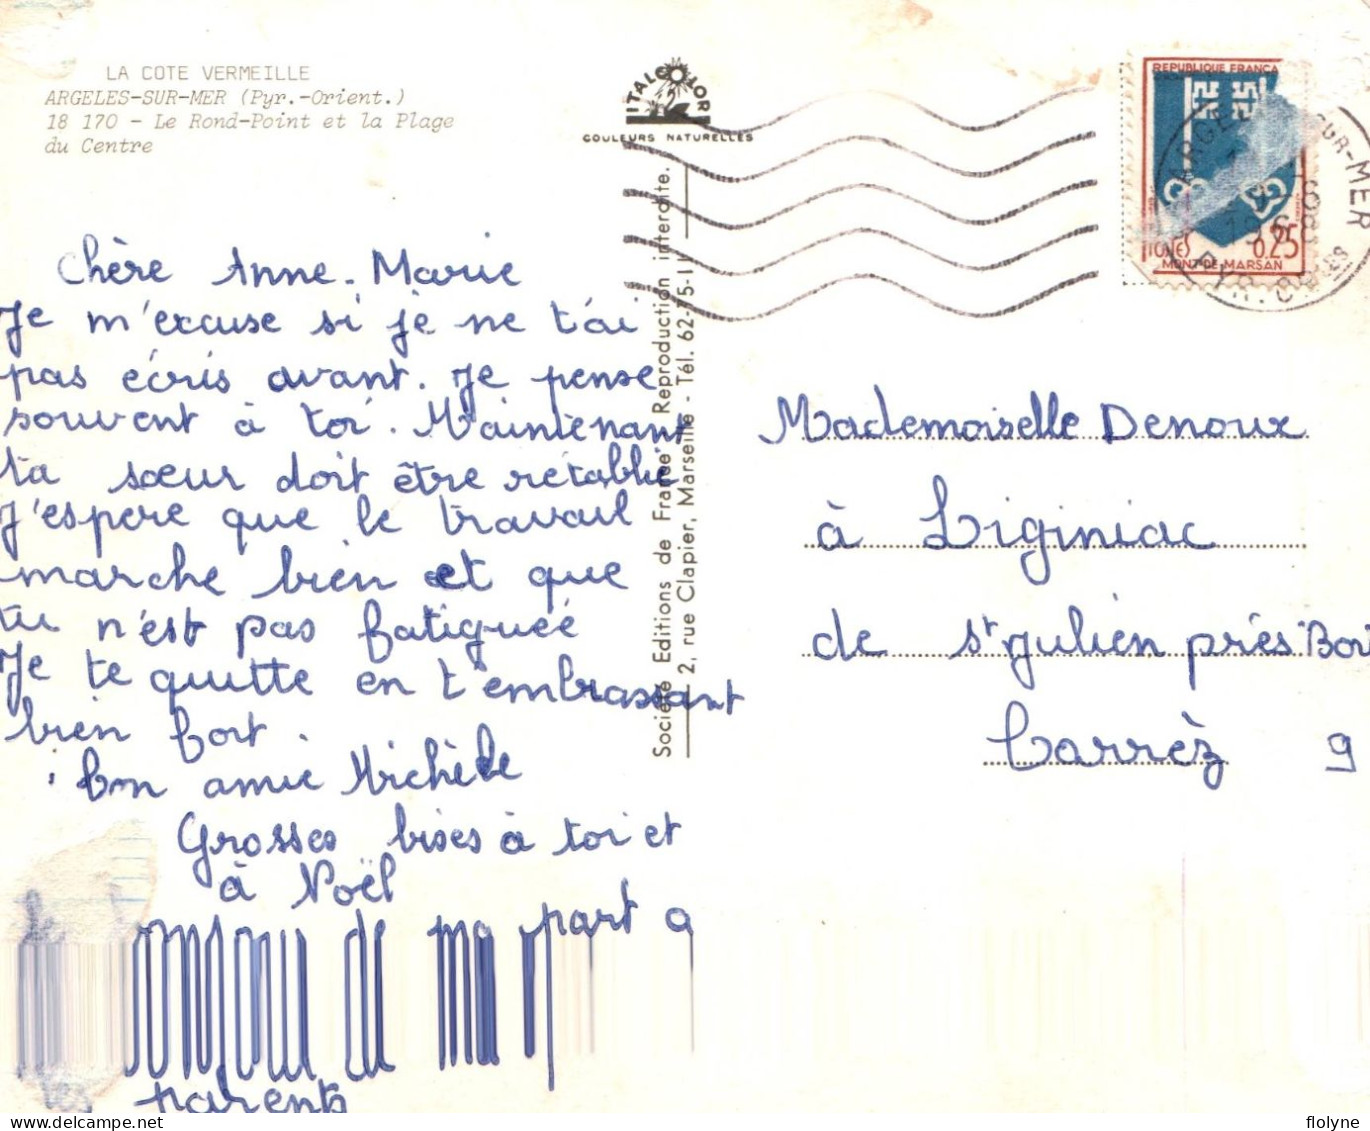 LA COTE VERMEILLE
ARGELES-SUR-MER (Pyr.-Orient.)
18 170 - Le Rond-Point et la Plage
du Centre
ITALCOLOR
COULEURS NATURELLES
REPUBLIQUE FRANCA
0.25
MONT-DE-MARSAN
Chère Anne-Marie
Je m'excuse si je ne t'ai
pas écris avant. Je pense
souvent à toi. Maintenant
ta sœur doit être rétablie
J'espere que le travail
marche bien et que
tu n'est pas fatiguée
Je te quitte en t'embrassant
bien fort.
Ton amie Michèle
Grosses bises à toi et
à Noël
bonjour de ma part a
tes parents
Société Editions de France Reproduction interdite.
2, rue Clapier, Marseille - Tél. 62-75-11
Mademoiselle Denoux
à Liginiac
de St Julien près Bor
Corrèz 9
flolyne